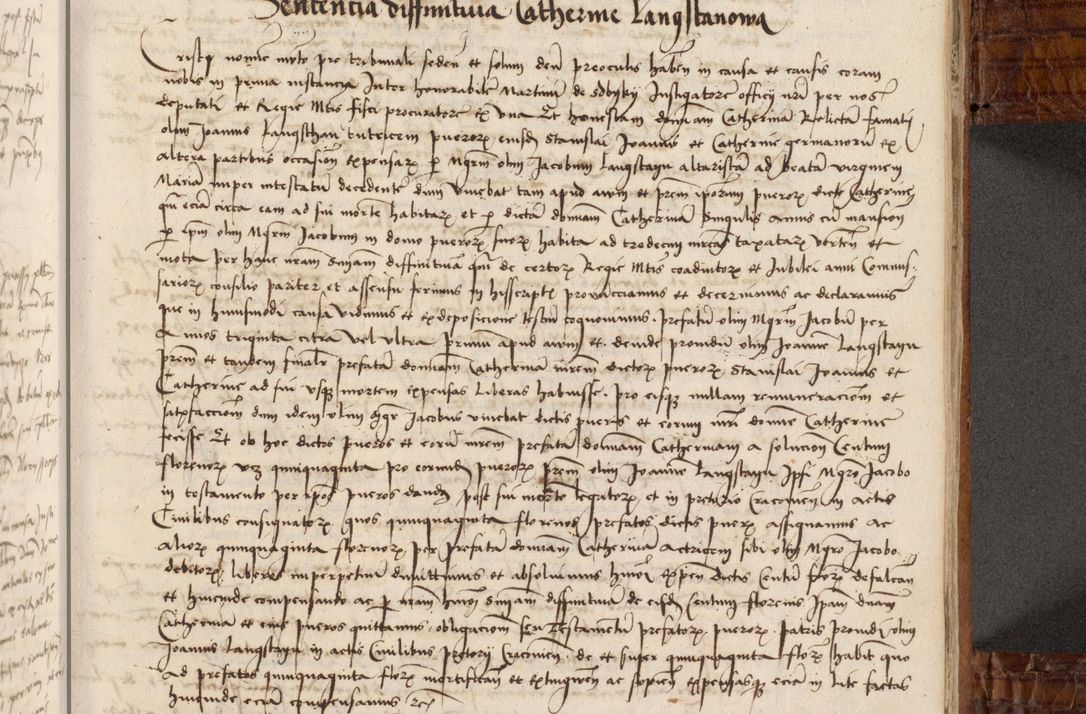 Sententia diffinitiva Catherine Langstanowa
Cristi nomine invocato pro tribunali seden et solum deum preoculis haben in causa et causis coram
nobis in prima instancia Inter honorabilem Martinum de Instigatorem officy nri per nos
deputatum et Regie Mtis fisci procuratorem Ex una Et honestam dominam Catherinam Relictam famati
olim Joannis Langsthan tutricem pueror eiusdem Stanislai Joannis et Catherine germanorum Ex
altera partibus occasion expensar per Mgrm olim Jacobum Langstagn altaristam ad beatam virginem
Mariam nuper intestatum decedentem dum vivebat tam apud avum et prem ipsorum pueror dicte Catherine
quam eciam circa eam ad sui mortem habitar et per dictam dominam Catherinam singulis annis cum mansion
per ipm olim Mgrm Jacobum in domo pueror suor habita ad tredecim mrcas taxatar verten et
mota per hanc nram sniam diffinitivam quam de certor Regie Mtis coadiutor et Jubilei anni Commis
sarior consilio pariter et assensu ferimus in hisscriptis pronunciamus et decernimus ac declaramus
que in huiusmodi causa vidimus et exdeposicione testium cognovimus. prefatum olim Mgrm Jacobum per
annos triginta citra vel ultra primum apud avum et deinde providum olim Joannem Langstagn
prem et tandem finaliter prefatam dominam Catherinam mrem dictor pueror Stanislai Joannis et
Catherine ad sui usque mortem expensas liberas habuisse. pro eisque nullam remuneracionem et
satisfaccionem dum idem olim Mgr Jacobus vivebat dictis pueris et eorum mri domine Catherine
fecisse Et ob hoc dictos pueros et eorum mrem prefatam dominam Catherinam a solucion Centum
florenor vcz quinquaginta pro eorundem pueror prem olim Joannem Langstagn ipsi Mgro Jacobo
in testamento per ipos pueros dand post sui mortem legator et in pretorio Cracovien in actis
Civilibus consignator quos quinquaginta florenos prefatos dictis pueris assignamus ac
alior quinquaginta florenor per prefatam dominam Catherinam actricem sibi olim Mgro Jacobo
debitor liberos imperpetuum dimittimus et absolvimus hmoi expen dictis Centum floren defalcan
et hincinde compensando ac per nram hmoi sniam diffinitivam de eisdem Centum florenis ipsam dnam
Catherinam et eius pueros quittamus. obligacionem seu Testamentum prefator pueror patris providi olim
Joannis Langstagn in actis Civilibus pretorij Cracovien. de et super quinquaginta floren habit quo
ad prefatos quinquaginta floren mortifican et extinguen ac sopien expensasque eciam in lite factas
hincinde eciam compensamus etc